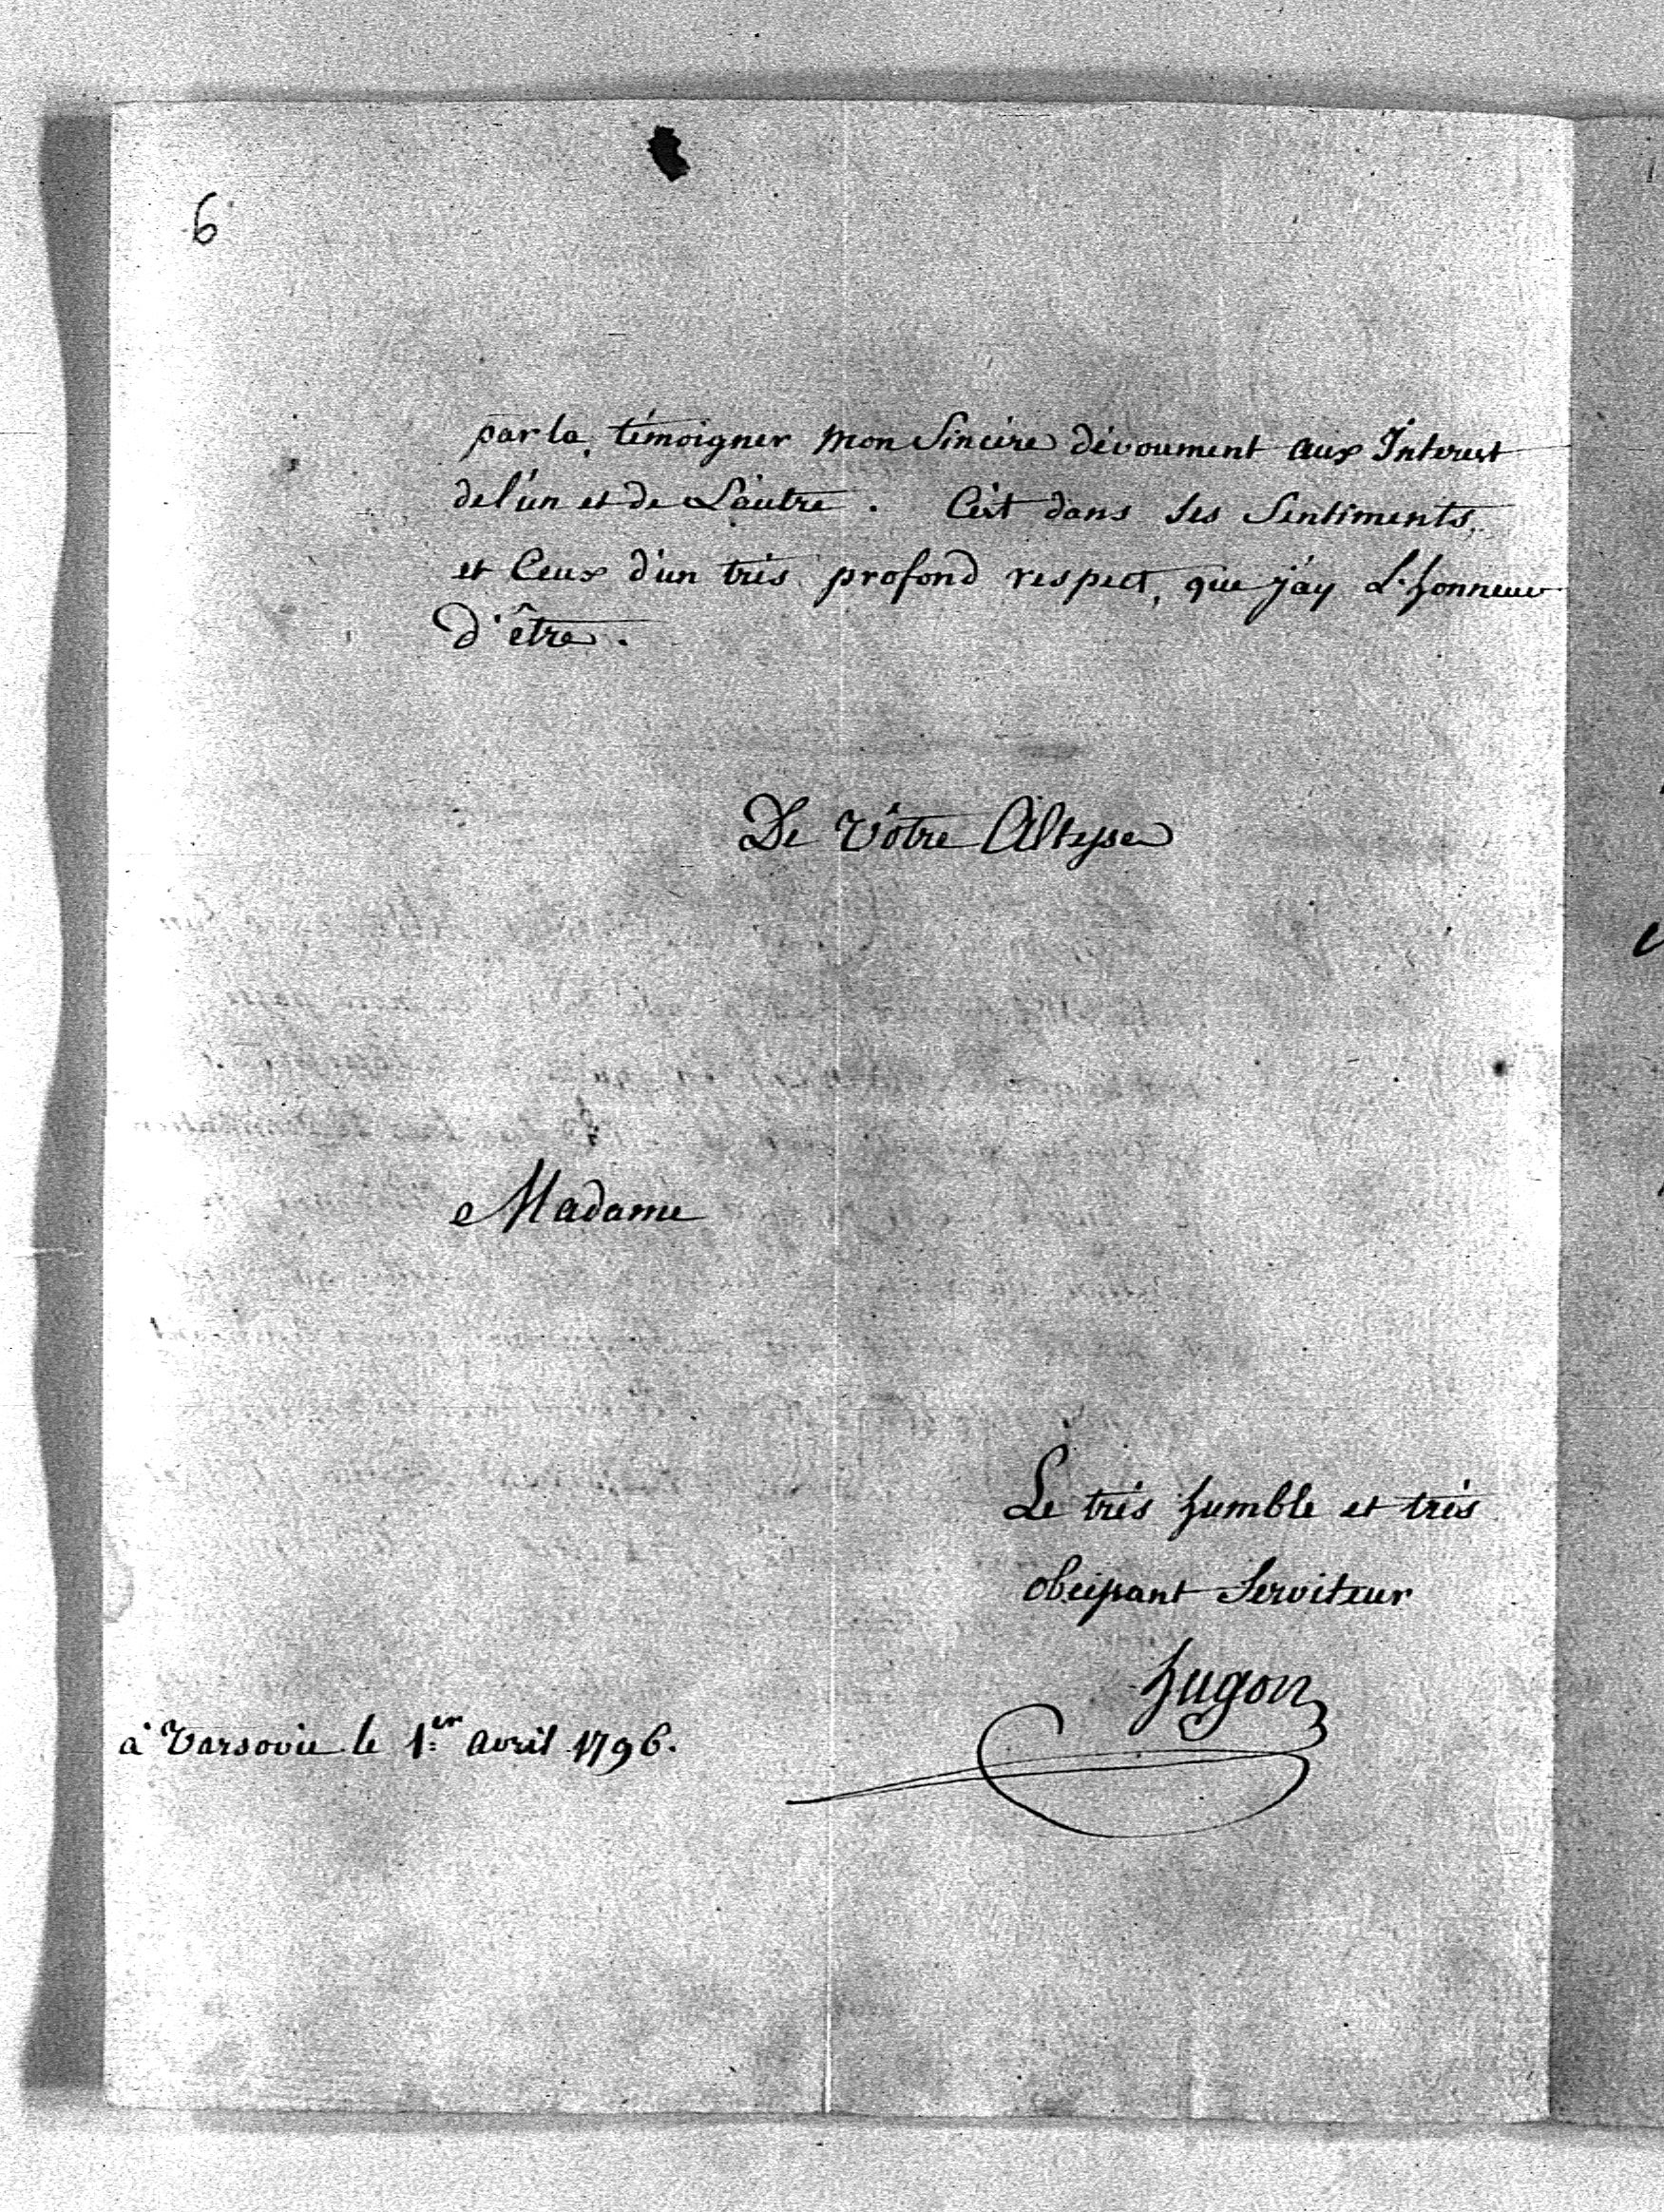 6
par la, témoigner mon Sincére dévoument aux Interest
de l'un et de L'autre. C'est dans ses Sentiments,
et Ceux d'un trés profond respect, que j'ay L'honneur
d'être.
De Vôtre Altesse
Madame
Le trés humble et trés
obeissant Serviteur
Hugon
à Varsovie le 1.er avril 1796.